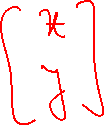 [x
y]